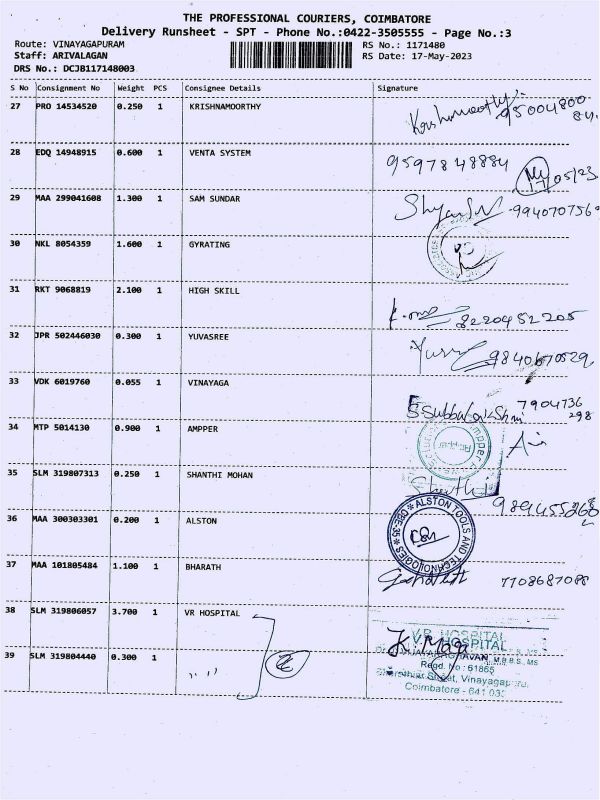 THE PROFESSIONAL COURIERS, COIMBATORE
Delivery Runsheet - SPT - Phone No.:0422-3505555 - Page No.:3
Route: VINAYAGAPURAM RS No.: 1171480
Staff: ARIVALAGAN RS Date: 17-May-2023
DRS No.: DCJB117148003
S No Consignment No Weight PCS Consignee Details Signature
27 PRO 14534520 0.250 1 KRISHNAMOORTHY Krishnamoorthy
28 EDQ 14948915 0.600 1 VENTA SYSTEM 9597848884
29 MAA 299041608 1.300 1 SAM SUNDAR
30 NKL 8054359 1.600 1 GYRATING
31 RKT 9068819 2.100 1 HIGH SKILL 8220452205
32 JPR 502446030 0.300 1 YUVASREE
33 VDK 6019760 0.055 1 VINAYAGA 7904736
298
34 MTP 5014130 0.900 1 AMPPER
35 SLM 319807313 0.250 1 SHANTHI MOHAN
36 MAA 300303301 0.200 1 ALSTON ALSTON TOOLS AND TECHNOLOGIES CBE-35
37 MAA 101805484 1.100 1 BHARATH
38 SLM 319806057 3.700 1 VR HOSPITAL
39 SLM 319804440 0.300 1 " "
V.R. HOSPITAL
M.B.B.S., MS
Regd. No : 61865
Street, Vinayagapuram
Coimbatore - 641 035